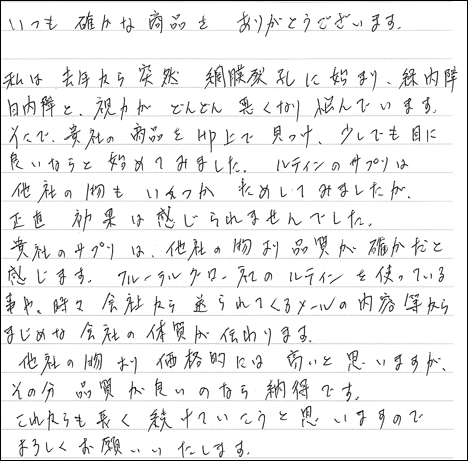 いつも 確かな商品を ありがとうございます。
私は去年から突然 網膜裂孔に始まり、緑内障
白内障と、視力がどんどん悪くなり悩んでいます。
そこで、貴社の商品をHP上で見つけ、少しでも目に
良いならと始めてみました。 ルテインのサプリは
他社の物もいくつかためしてみましたが、
正直 効果は感じられませんでした。
貴社のサプリは、他社の物より品質が確かだと
感じます。 フローラルグロー社のルテインを使っている
事や、時々会社から送られてくるメールの内容等から
まじめな会社の体質が伝わります。
他社の物より価格的には高いと思いますが、
その分品質が良いのなら納得です。
これからも長く続けていこうと思いますので
よろしくお願いいたします。